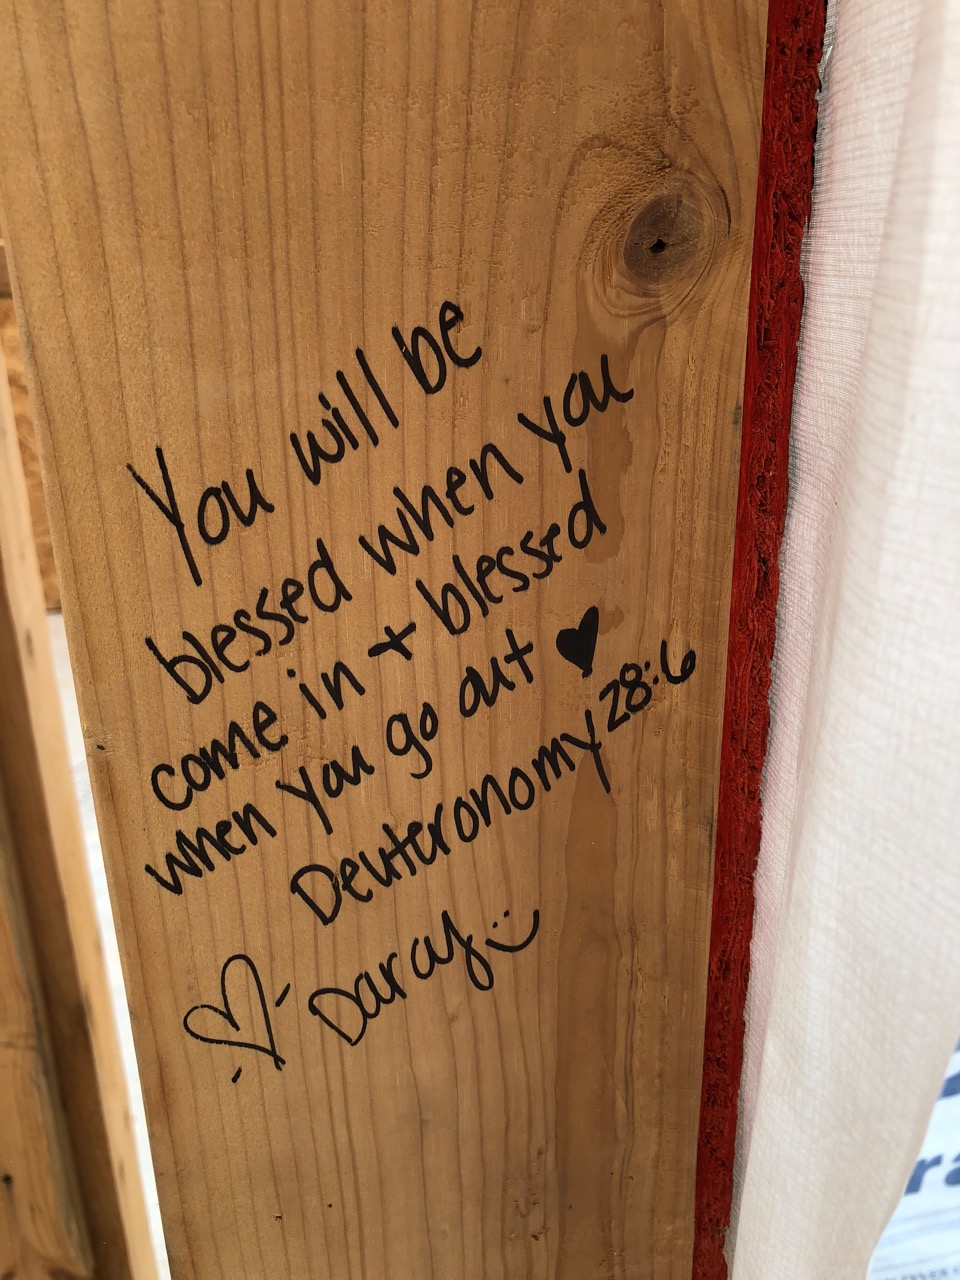 You will be
blessed when you
come in + blessed
when you go out ♥
Deuteronomy 28:6
♡- Darcy :)